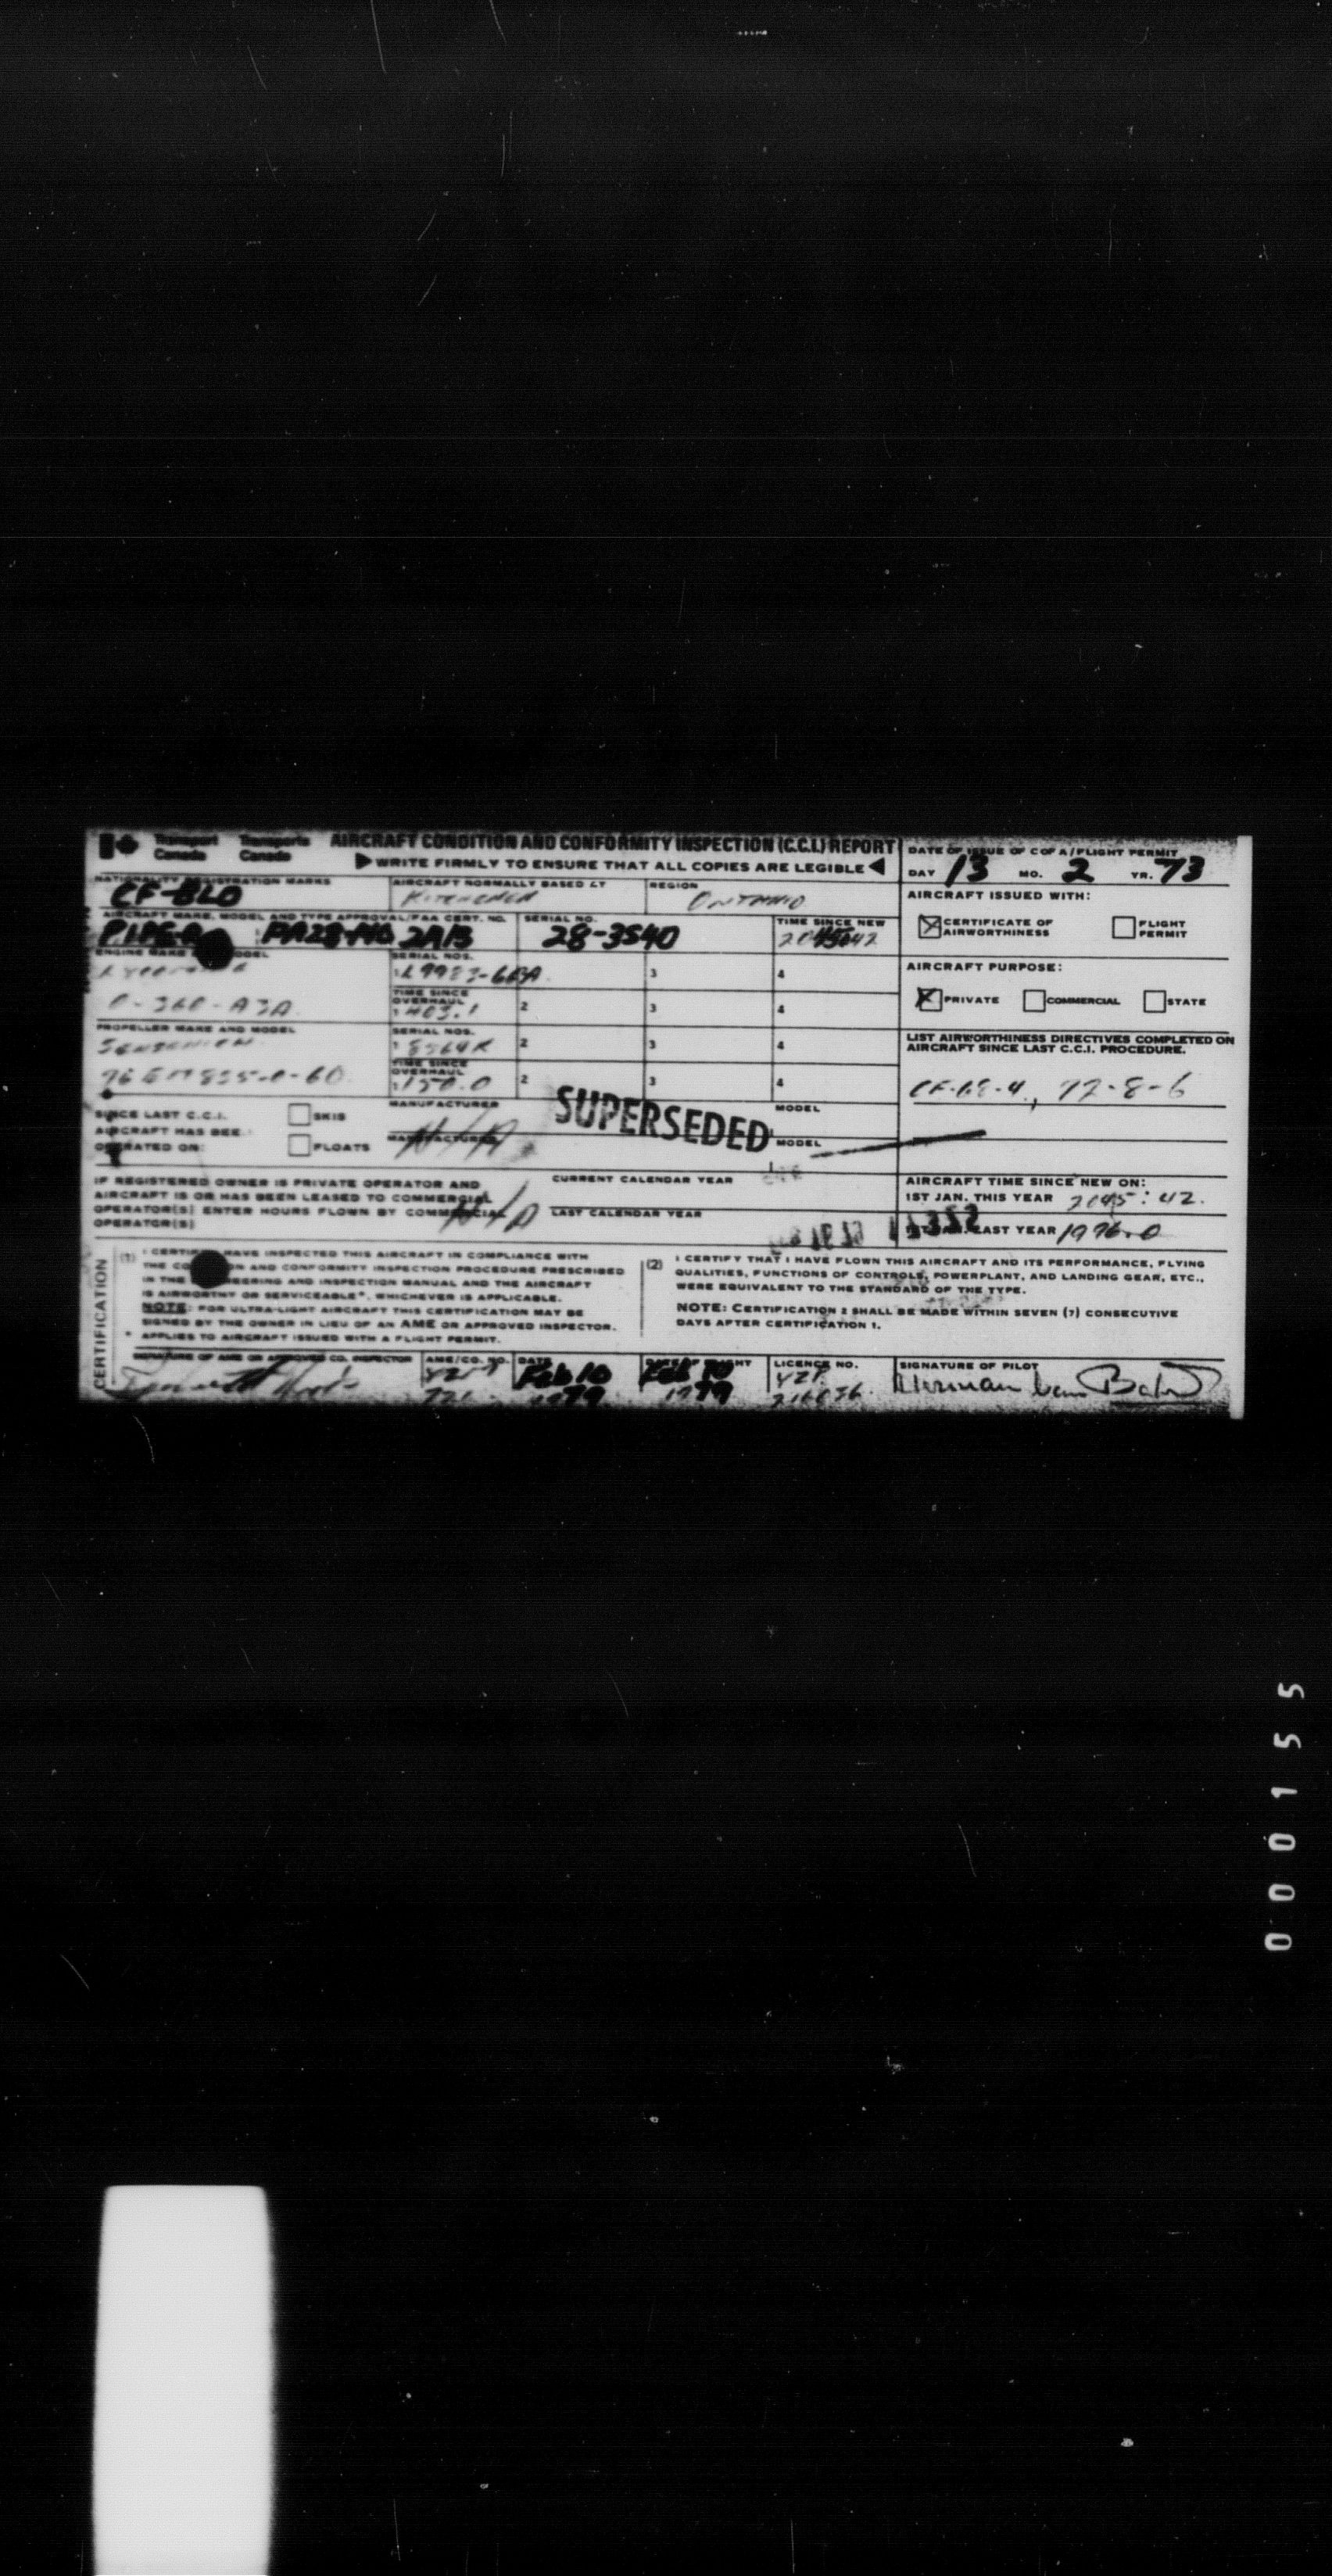 Transport Canada Transports Canada AIRCRAFT CONDITION AND CONFORMITY INSPECTION (C.C.I.) REPORT
▶ WRITE FIRMLY TO ENSURE THAT ALL COPIES ARE LEGIBLE ◀
DATE OF ISSUE OF C OF A/FLIGHT PERMIT
DAY 13 MO. 2 YR. 73
NATIONALITY REGISTRATION MARKS AIRCRAFT NORMALLY BASED AT REGION
CF-BLO KITCHENER ONTARIO
AIRCRAFT ISSUED WITH:
CERTIFICATE OF AIRWORTHINESS FLIGHT PERMIT
AIRCRAFT MAKE, MODEL AND TYPE APPROVAL/FAA CERT. NO. SERIAL NO. TIME SINCE NEW
PIPER PA28-140 2A13 28-3540
ENGINE MAKE MODEL SERIAL NOS.
3 4
O-360-A3A
TIME SINCE OVERHAUL
1 403.1 2 3 4
AIRCRAFT PURPOSE:
PRIVATE COMMERCIAL STATE
PROPELLER MAKE AND MODEL SERIAL NOS.
SENSENICH 2 3 4
TIME SINCE OVERHAUL
1 150.0 2 3 4
LIST AIRWORTHINESS DIRECTIVES COMPLETED ON
AIRCRAFT SINCE LAST C.C.I. PROCEDURE.
CF-68-4, 72-8-6
SUPERSEDED
SINCE LAST C.C.I.
AIRCRAFT HAS BEE
OPERATED ON:
SKIS
FLOATS
MANUFACTURER MODEL
MANUFACTURER MODEL
N/A
IF REGISTERED OWNER IS PRIVATE OPERATOR AND
AIRCRAFT IS OR HAS BEEN LEASED TO COMMERCIAL
OPERATOR(S) ENTER HOURS FLOWN BY COMMERCIAL
OPERATOR(S)
N/A
CURRENT CALENDAR YEAR
LAST CALENDAR YEAR
AIRCRAFT TIME SINCE NEW ON:
1ST JAN. THIS YEAR 2045:42
1ST JAN. LAST YEAR 1976.0
CERTIFICATION
(1) I CERTIFY HAVE INSPECTED THIS AIRCRAFT IN COMPLIANCE WITH
THE CO ON AND CONFORMITY INSPECTION PROCEDURE PRESCRIBED
IN THE EERING AND INSPECTION MANUAL AND THE AIRCRAFT
IS AIRWORTHY OR SERVICEABLE*, WHICHEVER IS APPLICABLE.
NOTE: FOR ULTRA-LIGHT AIRCRAFT THIS CERTIFICATION MAY BE
SIGNED BY THE OWNER IN LIEU OF AN AME OR APPROVED INSPECTOR.
* APPLIES TO AIRCRAFT ISSUED WITH A FLIGHT PERMIT.
(2) I CERTIFY THAT I HAVE FLOWN THIS AIRCRAFT AND ITS PERFORMANCE, FLYING
QUALITIES, FUNCTIONS OF CONTROLS, POWERPLANT, AND LANDING GEAR, ETC.,
WERE EQUIVALENT TO THE STANDARD OF THE TYPE.
NOTE: CERTIFICATION 2 SHALL BE MADE WITHIN SEVEN (7) CONSECUTIVE
DAYS AFTER CERTIFICATION 1.
SIGNATURE OF AME OR APPROVED CO. INSPECTOR AME/CO. NO. DATE LICENCE NO. SIGNATURE OF PILOT
Feb 10 Feb 10 YZP Herman van
1979 1979
000155